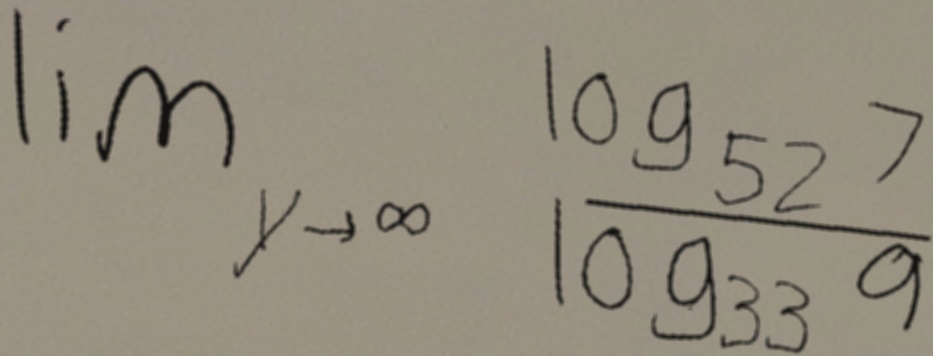 lim y→∞ log₅₂ 7 / log₃₃ 9